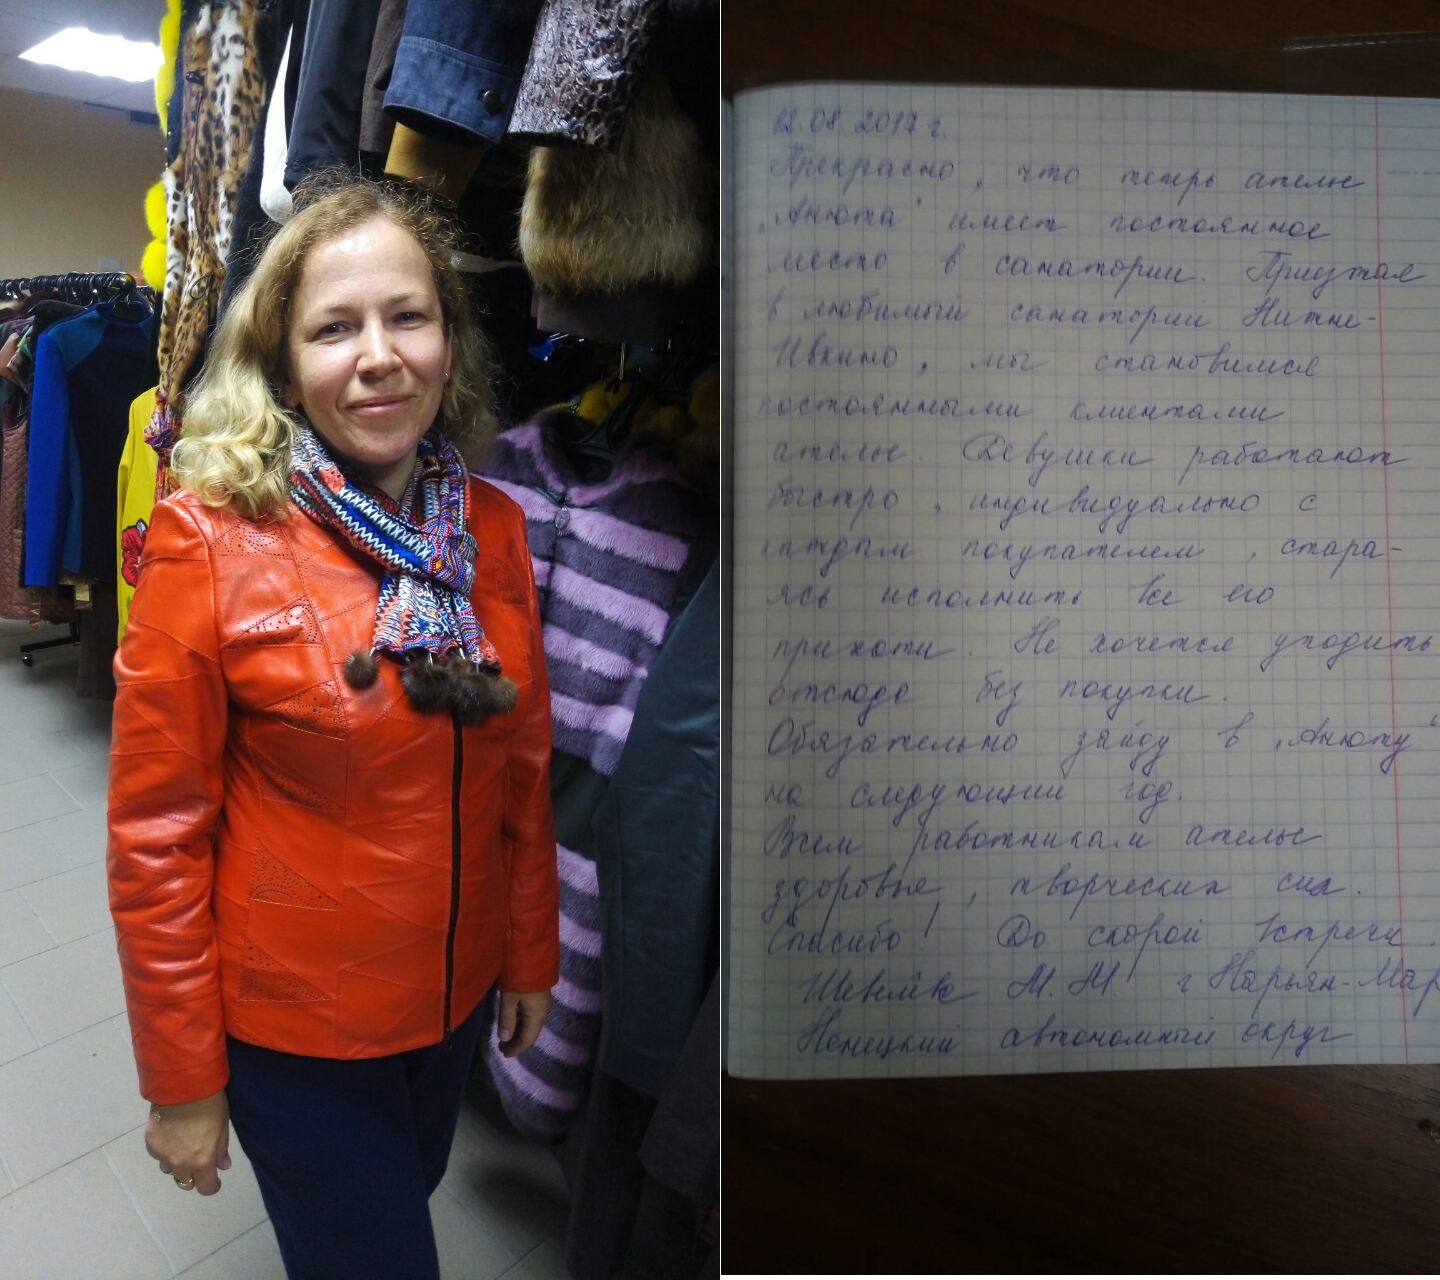 12.08.2017 г.
Прекрасно, что теперь ателье
„Анюта" имеет постоянное
место в санатории. Приезжая
в любимый санаторий Нижне-
Ивкино, мы становимся
постоянными клиентами
ателье. Девушки работают
быстро, индивидуально с
каждым покупателем, стара-
ясь исполнить все его
прихоти. Не хочется уходить
отсюда без покупки.
Обязательно зайду в „Анюту"
на следующий год.
Всем работникам ателье
здоровья, творческих сил.
Спасибо! До скорой встречи.
М.М. г Нарьян-Мар
Ненецкий автономный округ